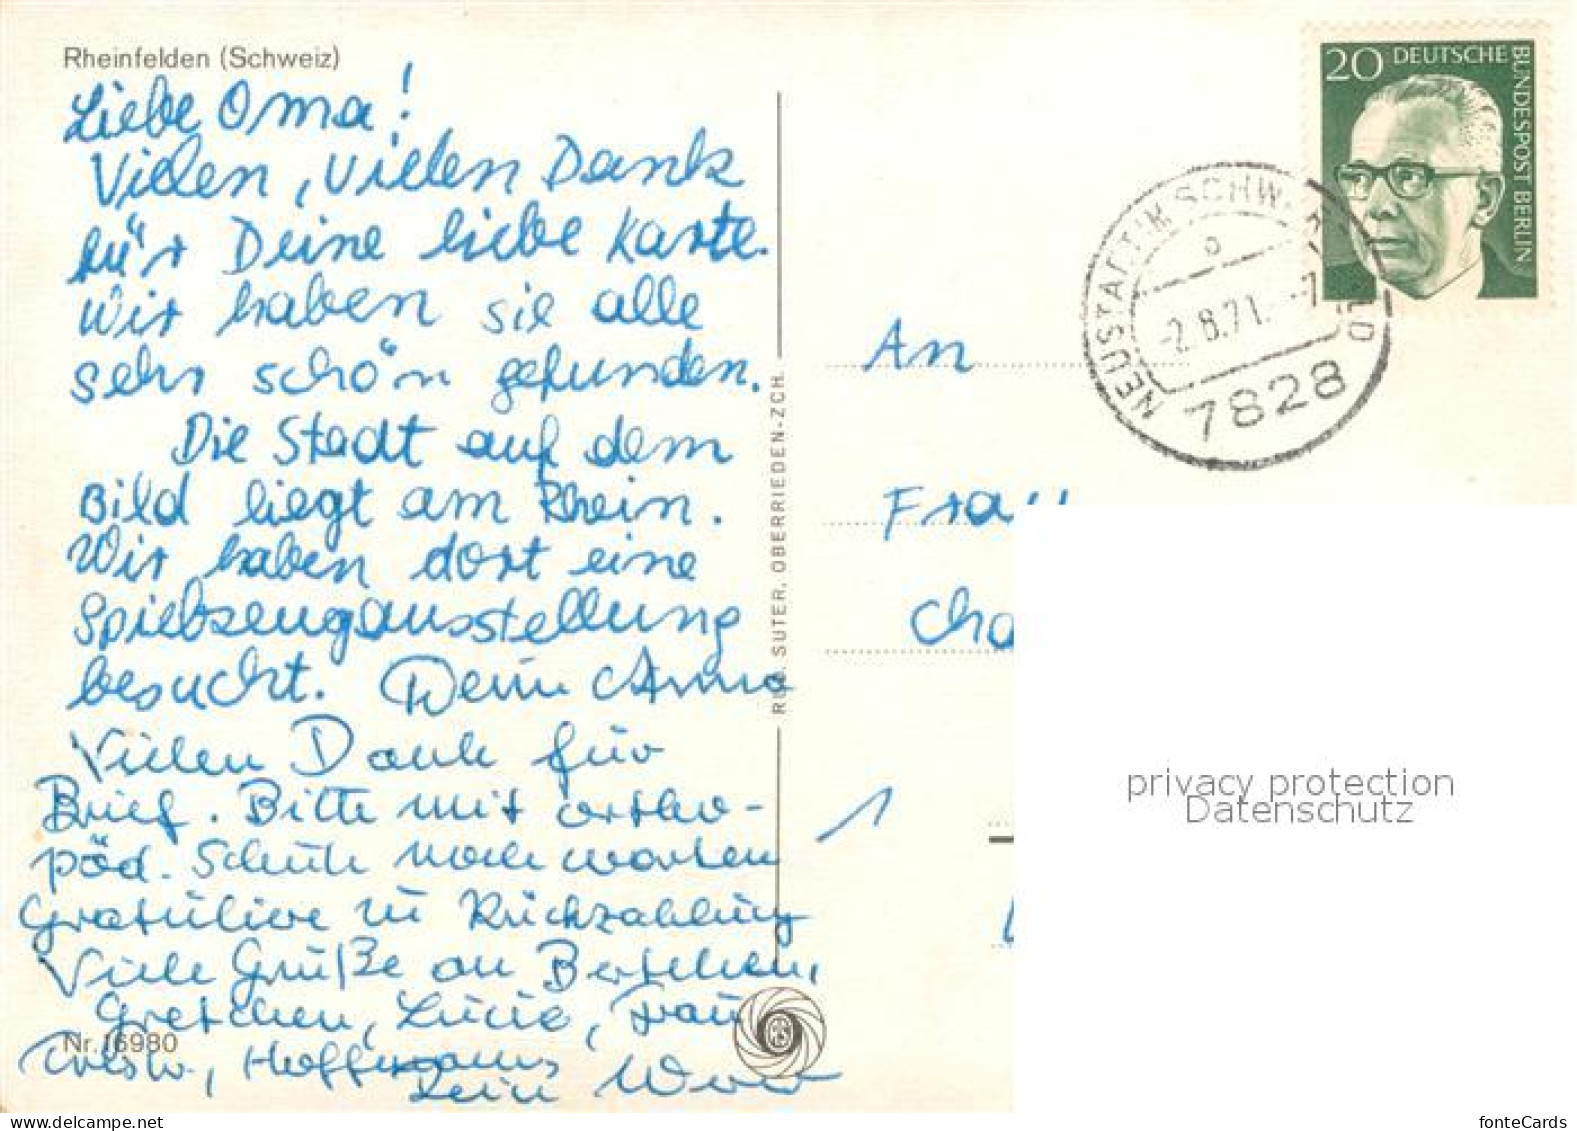 Rheinfelden (Schweiz)
Liebe Oma!
Vielen, vielen Dank
für Deine liebe Karte.
Wir haben sie alle
sehr schön gefunden.
Die Stadt auf dem
Bild liegt am Rhein.
Wir haben dort eine
Spielzeugausstellung
besucht. Deine Anna
Vielen Dank für
Brief. Bitte mit ortho-
päd. Schuh noch warten
Gratuliere zu Rückzahlung
Viele Grüße an Bertchen,
Gretchen, Lucie, Frau
Hoffmanns
Dein
Nr. 16980
RUD. SUTER, OBERRIEDEN-ZCH.
20 DEUTSCHE
BUNDESPOST BERLIN
NEUSTADT IM SCHW RZ LD
-2.8.71.-7
7828
An
Frau
Cha
privacy protection
Datenschutz
fonteCards